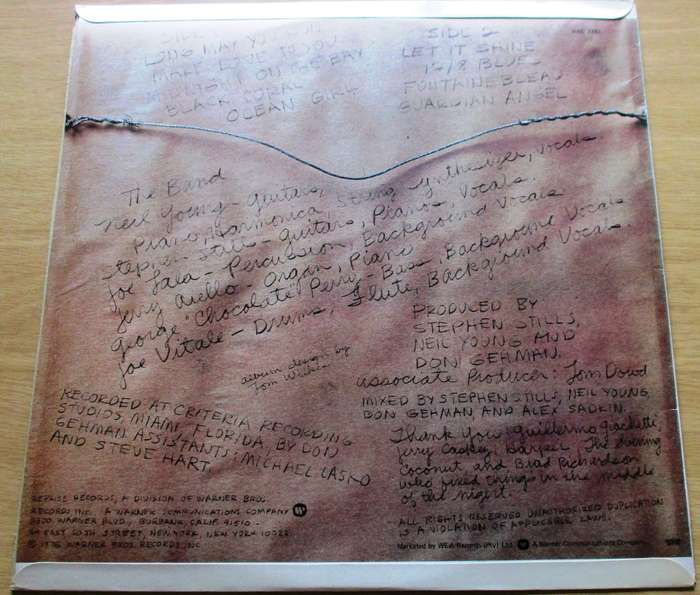 SIDE
LONG MAY YOU RUN
MAKE LOVE TO YOU
MIDNIGHT ON THE BAY
BLACK CORAL
OCEAN GIRL
SIDE 2
LET IT SHINE
12/8 BLUES
FONTAINEBLEAU
GUARDIAN ANGEL
The Band
Neil Young - guitars,
Piano, Harmonica, String Synthesizer, vocals
Stephen Stills - guitars, Pianos, Vocals.
Joe Lala - Percussion, Background Vocals
Jerry Aiello - Organ, Piano
George "Chocolate" Perry - Bass, Background Vocals
Joe Vitale - Drums, Flute, Background Vocals.
PRODUCED BY
STEPHEN STILLS,
NEIL YOUNG AND
DON GEHMAN.
associate Producer: Tom Dowd
album design by
Tom Wilkes
MIXED BY STEPHEN STILLS, NEIL YOUNG,
DON GEHMAN AND ALEX SADKIN.
RECORDED AT CRITERIA RECORDING
STUDIOS, MIAMI, FLORIDA, BY DON
GEHMAN ASSISTANTS: MICHAEL LASKO
AND STEVE HART.
Thank You: Guillermo Giachetti,
Jerry Caskey, Harper, The
Coconut, and Brad Richardson
who fixed things in the middle
of the night.
REPRISE RECORDS, A DIVISION OF WARNER BROS.
RECORDS INC. A WARNER COMMUNICATIONS COMPANY
3300 WARNER BLVD., BURBANK, CALIF. 91510.
EAST 50TH STREET, NEW YORK, NEW YORK 10022.
© 1976 WARNER BROS. RECORDS INC.
ALL RIGHTS RESERVED UNAUTHORIZED DUPLICATION
IS A VIOLATION OF APPLICABLE LAWS.
Marketed by WEA Records (Pty) Ltd. A Warner Communications Company